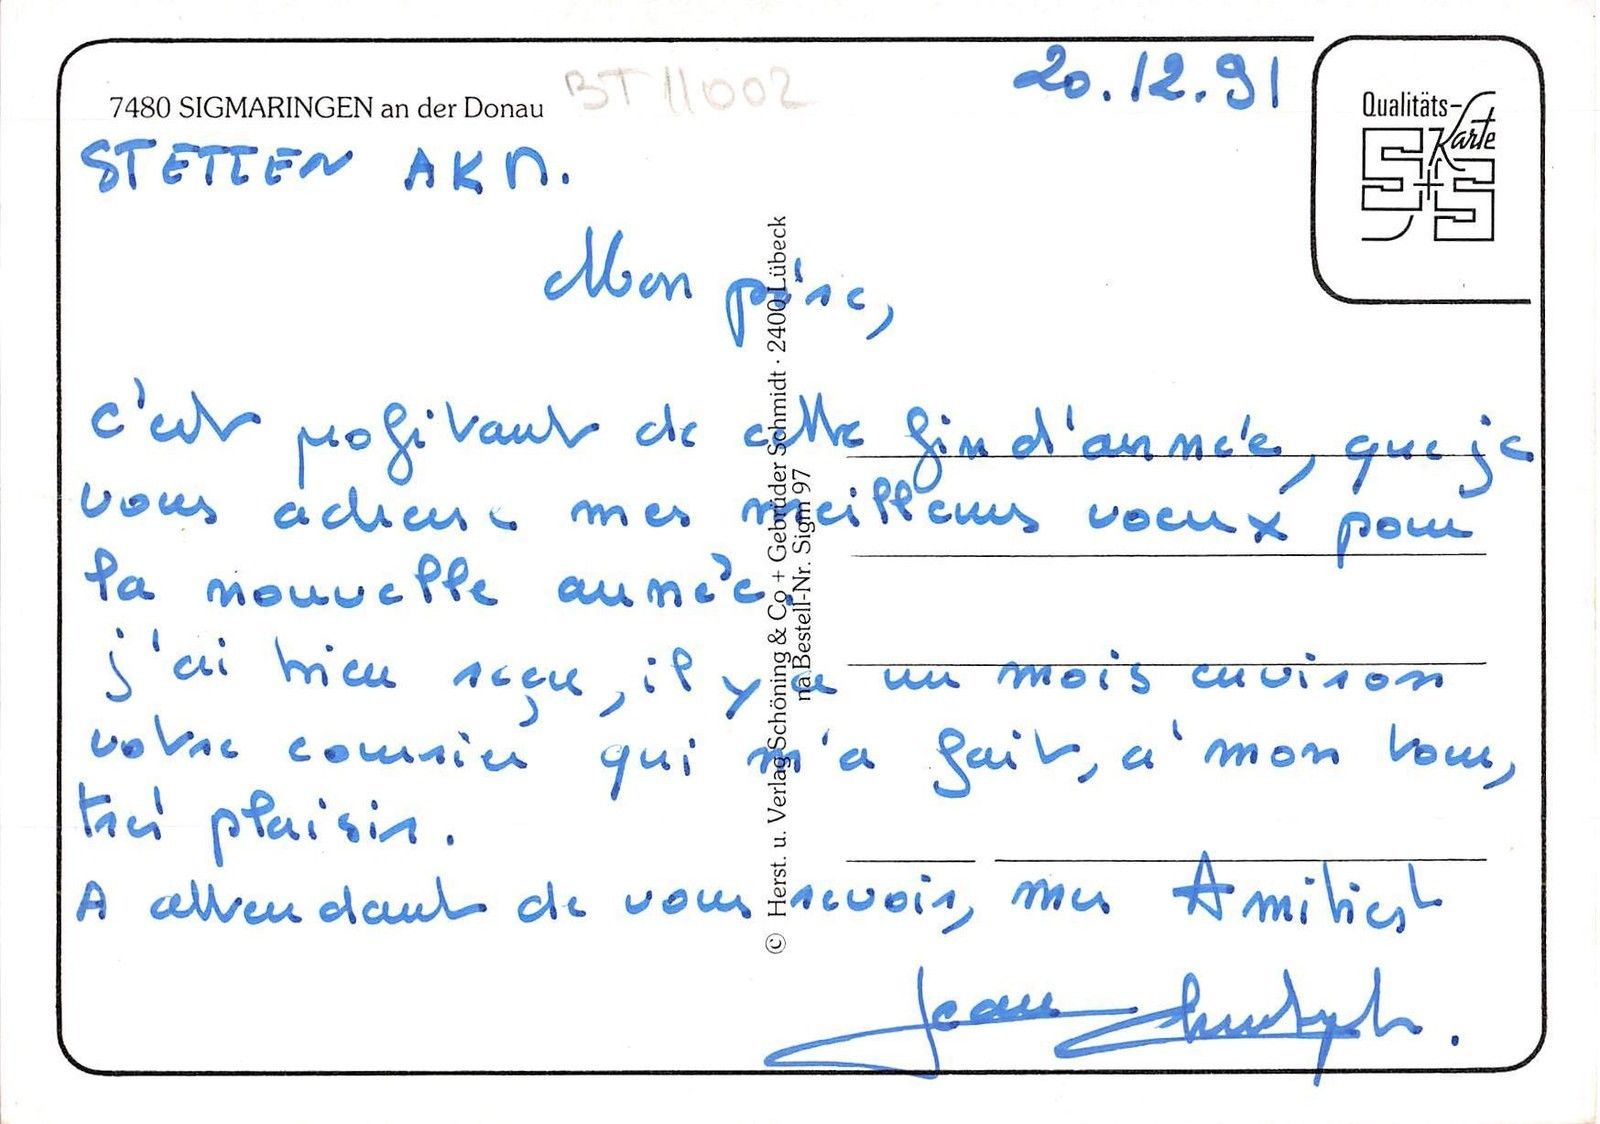 20.12.91
7480 SIGMARINGEN an der Donau
BT 11002
Qualitäts-Karte
S+S
STETTEN AKM.
Mon père,
c'est profitant de cette fin d'année, que je
vous adresse mes meilleurs voeux pour
la nouvelle année.
j'ai bien reçu, il y a un mois environ
votre courrier qui m'a fait, à mon tour,
très plaisir.
A attendant de vous revoir, mes Amitiés
Jean Christophe.
© Herst. u. Verlag Schöning & Co + Gebrüder Schmidt · 2400 Lübeck
na Bestell-Nr. Sigm 97